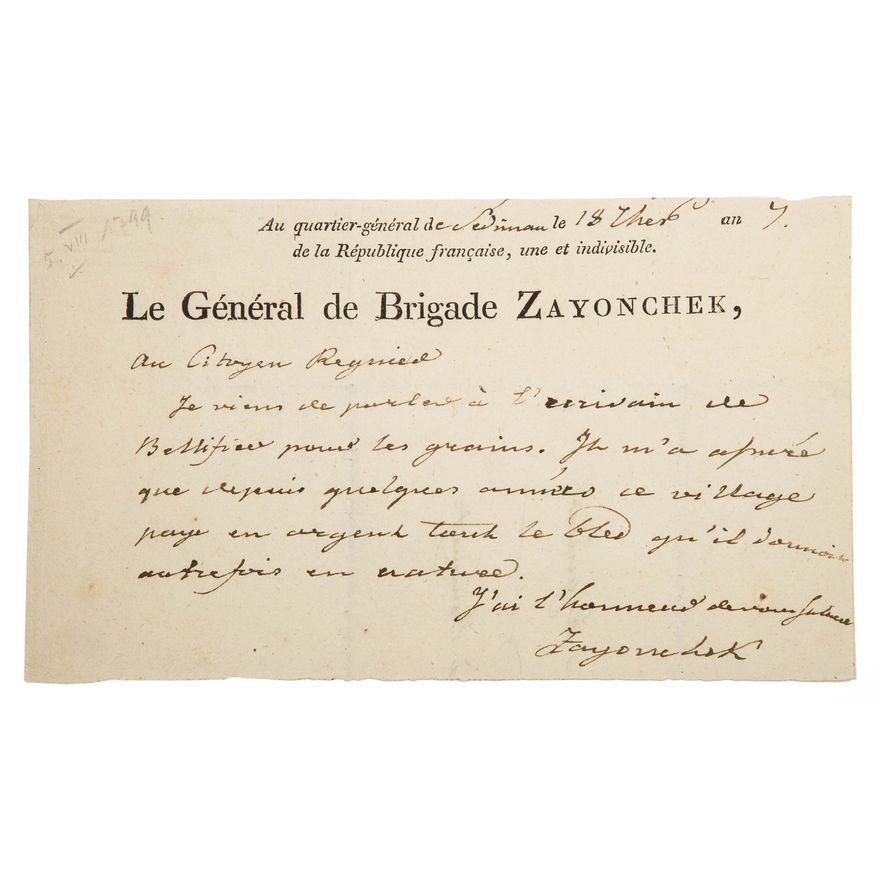 5. VIII 1799
Au quartier-général de Sédiman le 18 Ther an 7.
de la République française, une et indivisible.
Le Général de Brigade ZAYONCHEK,
au Citoyen Regnied
Je viens de parler à l'ecrivain de
pour les grains. Il m'a assuré
que depuis quelques années ce village
paye en argent tout le bled qu'il donnoit
autrefois en nature.
J'ai l'honneur de vous saluer
Zayonchek